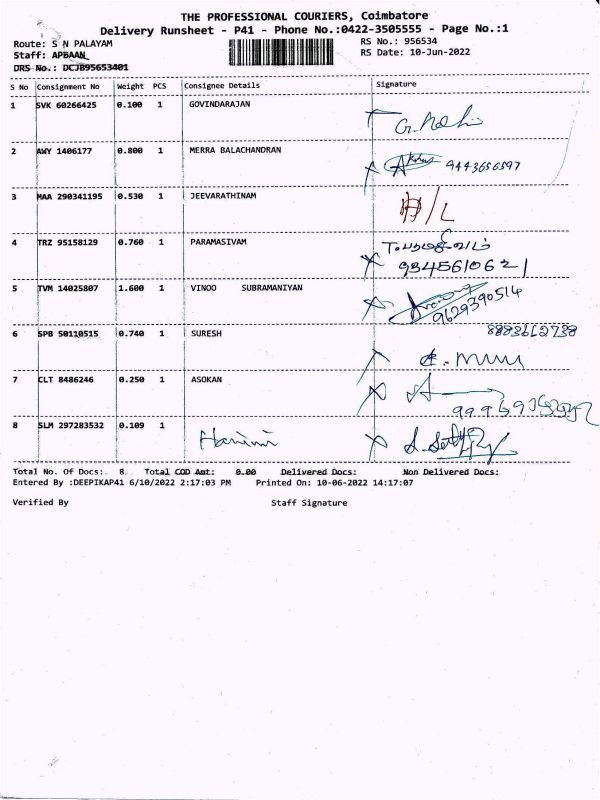 THE PROFESSIONAL COURIERS, Coimbatore
Delivery Runsheet - P41 - Phone No.:0422-3505555 - Page No.:1
Route: S N PALAYAM RS No.: 956534
Staff: APBAAN RS Date: 10-Jun-2022
DRS No.: DCJB95653401
S No Consignment No Weight PCS Consignee Details Signature
1 SVK 60266425 0.100 1 GOVINDARAJAN
2 AWY 1406177 0.800 1 MERRA BALACHANDRAN 9443656597
3 MAA 290341195 0.530 1 JEEVARATHINAM
4 TRZ 95158129 0.760 1 PARAMASIVAM
9345610621
5 TVM 14025807 1.600 1 VINOO SUBRAMANIYAN
9629390514
6 SPB 50110515 0.740 1 SURESH
7 CLT 8486246 0.250 1 ASOKAN
8 SLM 297283532 0.109 1
Total No. Of Docs: 8 Total COD Amt: 0.00 Delivered Docs: Non Delivered Docs:
Entered By :DEEPIKAP41 6/10/2022 2:17:03 PM Printed On: 10-06-2022 14:17:07
Verified By Staff Signature